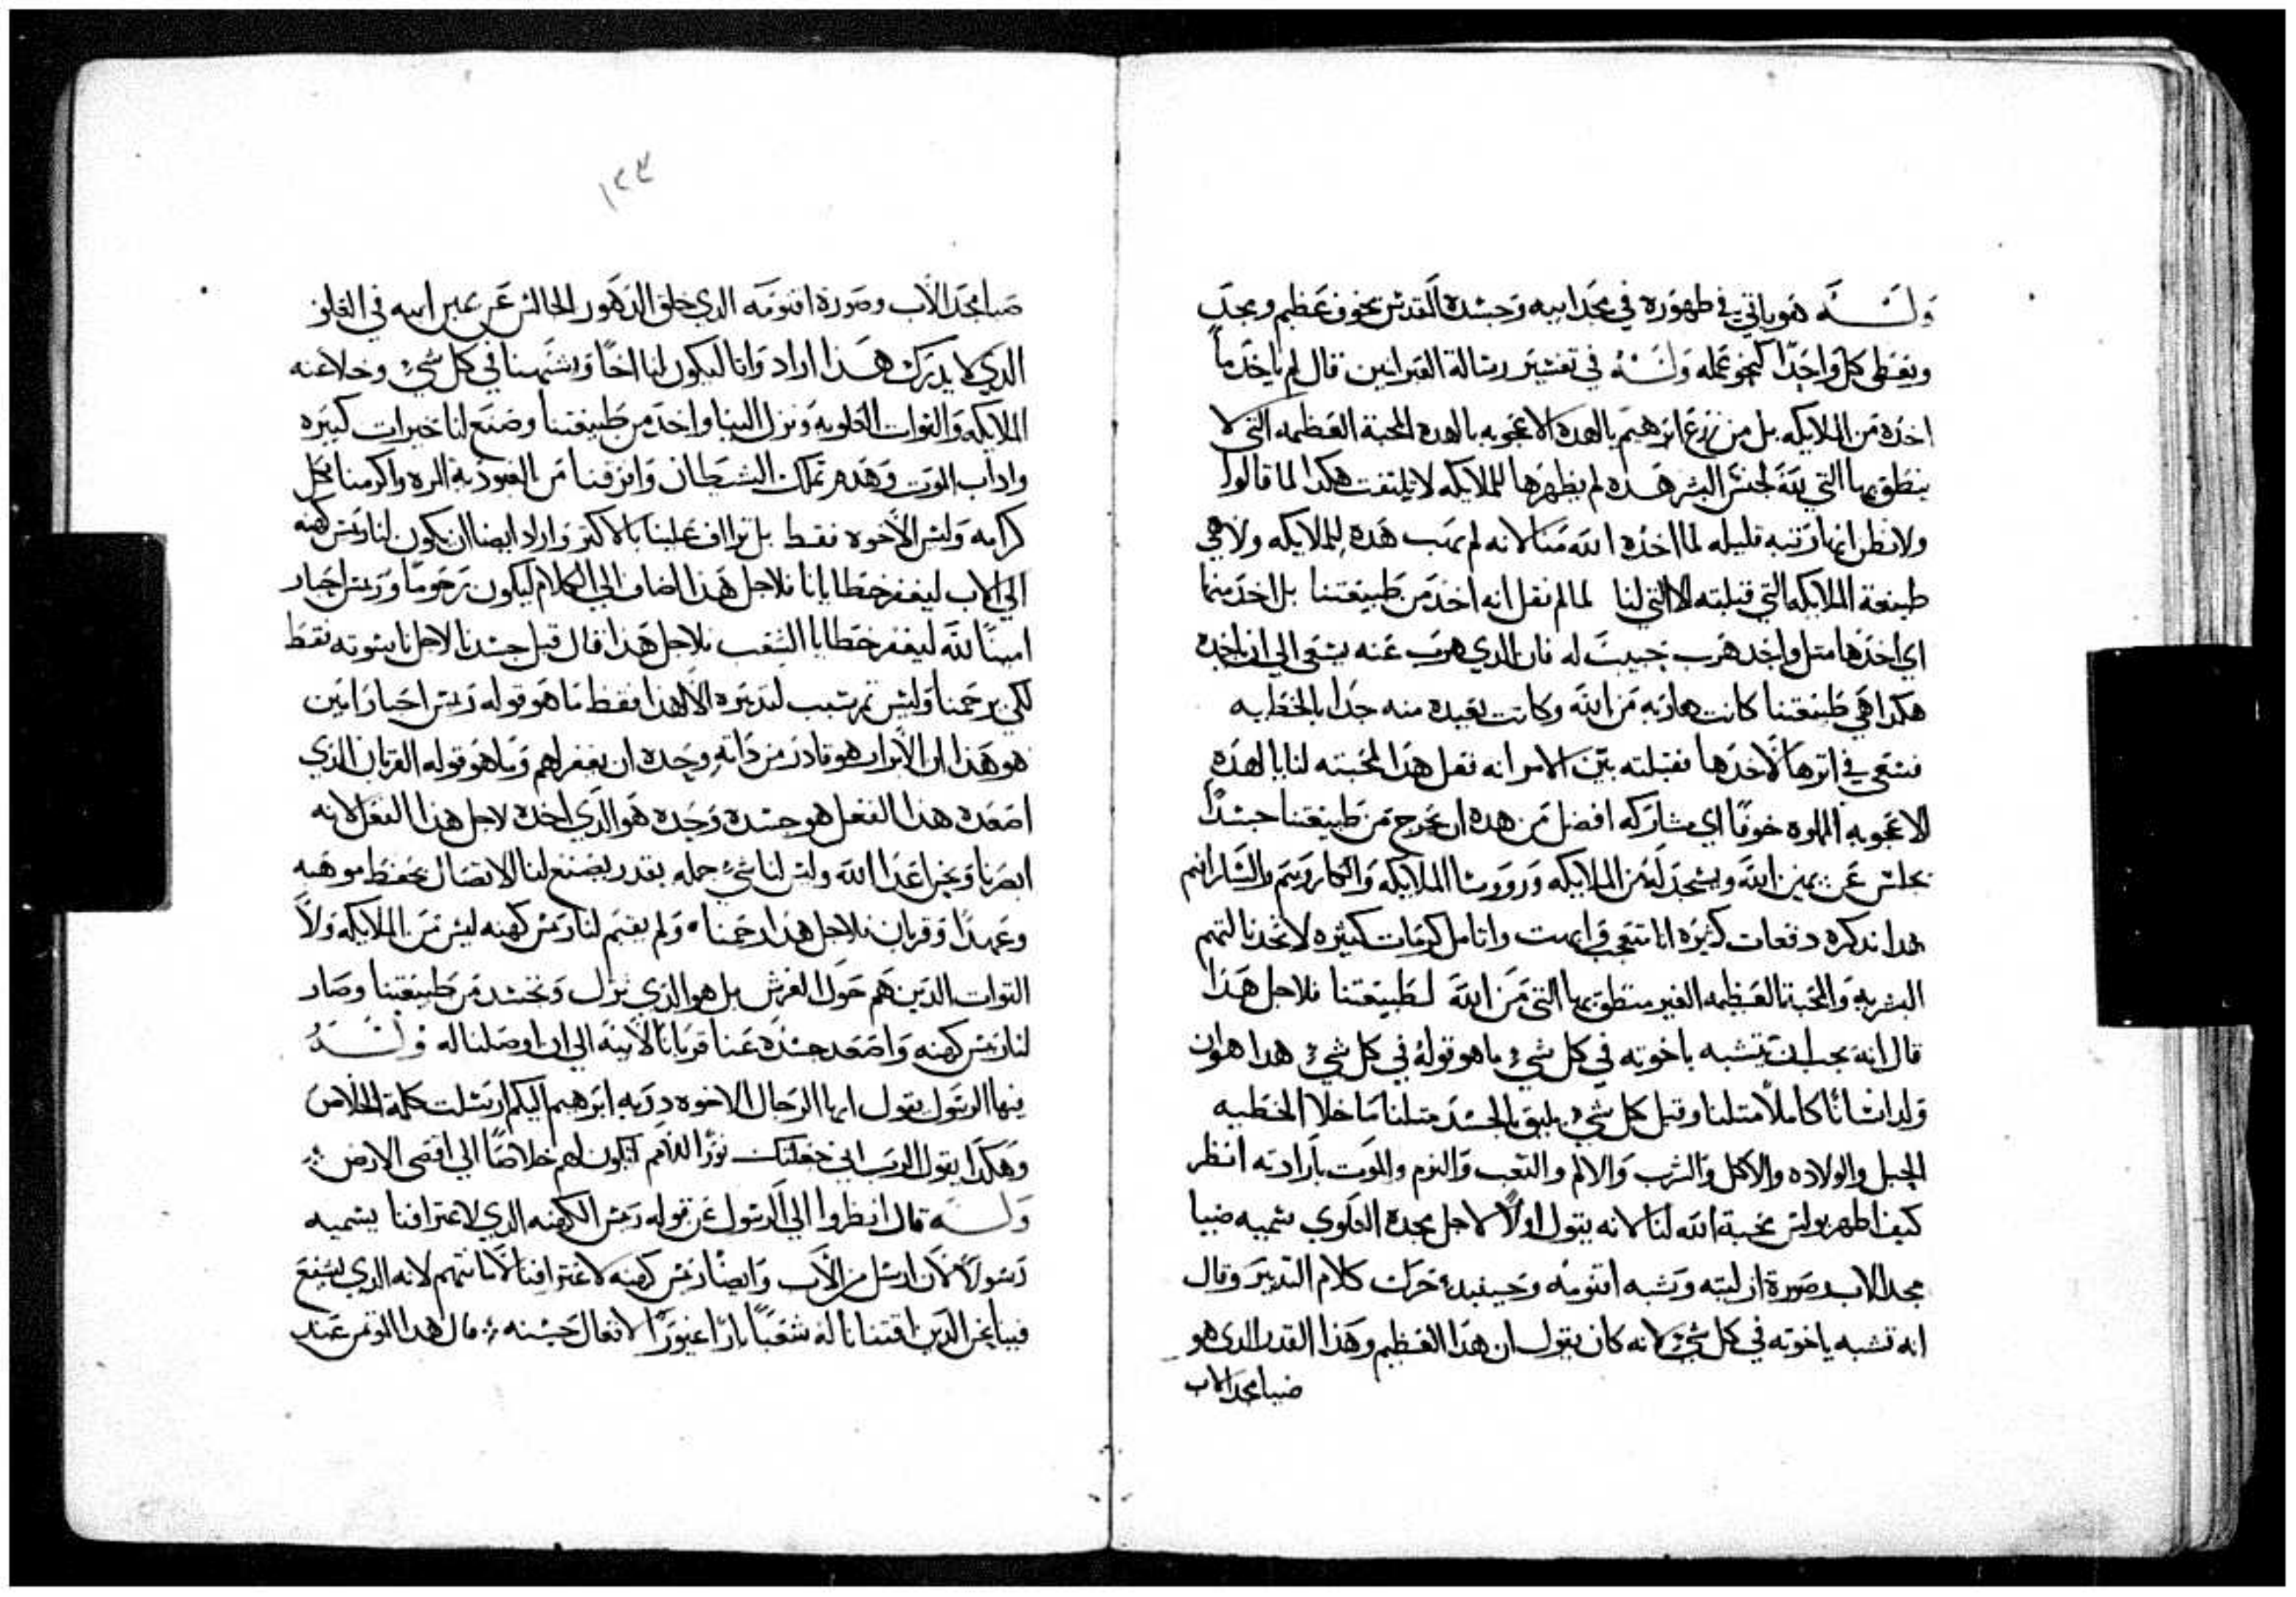 وله هو ياتي في ظهوره في مجد ابيه وجسده المقدس بخوف عظيم ومجد
ويعطي كل واحدًا كنحو عمله وله في تفسير رسالة العبرانيين قال لم ياخد ما
اخده من الملايكه بل من زرع ابرهيم يالهده الاعجوبه يالهده المحبة العظيمه التي لا
ينطق بها التي لله لجنس البشر هده لم يظهرها للملايكه لا يلتفت هكدا لما قالوا
ولا نظن انها رتبه قليله لما اخده الله منا لانه لم يهب هده للملايكه ولا هي
طبيعة الملايكه التي قبلته الا التي لنا لما لم نقل انه اخد من طبيعتنا بل اخد منها
اي اخدها متل واحد هرب حبيب له فان الدي هرب عنه يسعي الي ان ياخده
هكدا هي طبيعتنا كانت هاربه من الله وكانت بعيده منه جدا بالخطيه
فسعي في اترها لاخدها فقبلته بين الامر انه فعل هدا لمحبته لنا يا لهده
الاعجوبه المملوه خوفًا اي مشاركه افضل من هده ان يخرج من طبيعتنا جسدًا
يجلس عن يمين الله ويسجد له من الملايكه وروسا الملايكه والكاروبيم والسارافيم
هدا ندكره دفعات كتيره انا متعجب وابهت واتامل كرمات كتيره لاتخدنا لتمم
البشريه والمحبة العظيمه الغير منطوق بها التي من الله لطبيعتنا فلاجل هدا
قال انه يجب ان يتشبه باخوته في كل شي ما هو قوله في كل شي هدا هو ان
ولد انسانًا كاملًا متلنا وقبل كل شي يليق بالجسد متلنا ما خلا الخطيه
الحبل والولاده والاكل والشرب والالم والتعب والنوم والموت بارادته انظر
كيف اظهر بولس محبة الله لنا لانه يقول اولًا لاجل مجده العلوي يسميه ضيا
مجد الاب وصورة ازليته وشبه اقنومه وحينيد حرك كلام التدبير وقال
انه تشبه باخوته في كل شي لانه كان يقول ان هدا العظيم وهدا القدر الدي هو
ضيا مجد الاب
١٢٣
ضيا مجد الاب وصورة اقنومه الدي خلق الدهور الجالس عن يمين ابيه في العلو
الدي لا يدرك هدا اراد واتا ليكون لنا اخًا ويشبهنا في كل شي وخلا عنه
الملايكه والقوات العلويه ونزل الينا واخد من طبيعتنا وصنع لنا خيرات كتيره
واداب الموت وهدم تملك الشيطان واعتقنا من العبوديه المره واكرمنا بكل
كرامه وليس الاخوه فقط بل تراف علينا بالاكتر واراد ايضا ان يكون لنا ريس كهنه
الي الاب ليغفر خطايانا فلاجل هدا اضاف الي الكلام ليكون رحومًا وريس احبار
امينًا لله ليغفر خطايا الشعب فلاجل هدا قال قبل جسدنا لاجل ناسوته فقط
لكي يرحمنا وليس تم سبب لتدبيره الا هدا فقط ما هو قوله ريس احبار امين
هو هدا ان الابرار هو قادر من داته وحده ان يغفر لهم وما هو قوله القربان الدي
اصعده هدا الفعل هو جسده وحده هو الدي اخده لاجل هدا الفعل لانه
ابصرنا ونحن اعدا الله وليس لنا شي حمله بقدر يصنع لنا الاتصال بحفظ موهبه
وعهدًا وقربان فلاجل هدا رحمنا ولم يقيم لنا ريس كهنه ليس من الملايكه ولا
القوات الدين هم حول العرش بل هو الدي نزل وتجسد من طبيعتنا وصار
لنا ريس كهنه واصعد جسده عنا قربانا لابيه الي ان اوصلنا له وله
فيها الرسول يقول ايها الرجال الاخوه دريه ابرهيم اليكم ارسلت كلمة الخلاص
وهكدا يقول الرب اني جعلتك نورًا للامم لتكون لهم خلاصًا الي اقصي الارض
وله قال انظروا الي الرسول عن قوله ريس الكهنه الدي لاعترافنا يسميه
رسولًا لان ارسل من الاب وايضًا ريس كهنه لاعترافنا لاماتهم لانه الدي يشفع
فينا نحن الدين اقتنانا له شعبًا بارًا غيورًا لافعال حسنه قال هدا الموتمن عند